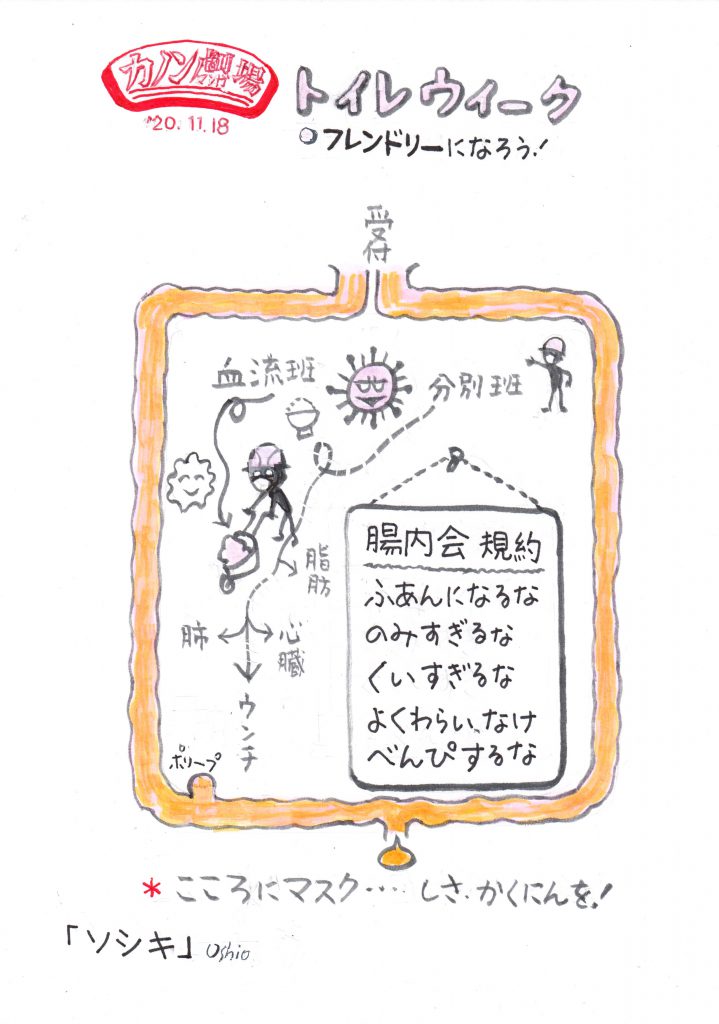 カノン劇場
マンガ
'20.11.18
トイレウィーク
フレンドリーになろう!
受付
血流班
分別班
脂肪
肺
心臓
ウンチ
ポリープ
腸内会 規約
ふあんになるな
のみすぎるな
くいすぎるな
よくわらい、なけ
べんぴするな
*こころにマスク‥‥しさ、かくにんを!
「ソシキ」 Oshio